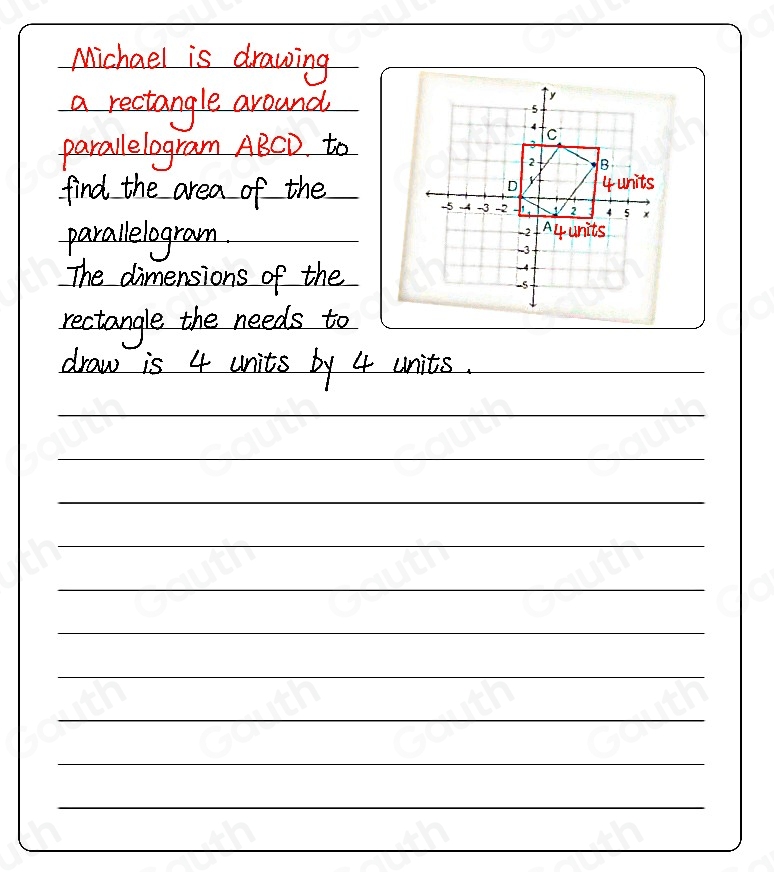 Michael is drawing
a rectangle around
parallelogram ABCD. to
find the area of the
parallelogram.
The dimensions of the
rectangle the needs to
draw is 4 units by 4 units.
y
5
4
C
3
2
B
4 units
1
D
-5 -4 -3 -2 -1 1 2 3 4 5 x
A 4 units
-2
-3
-4
-5
Gauth